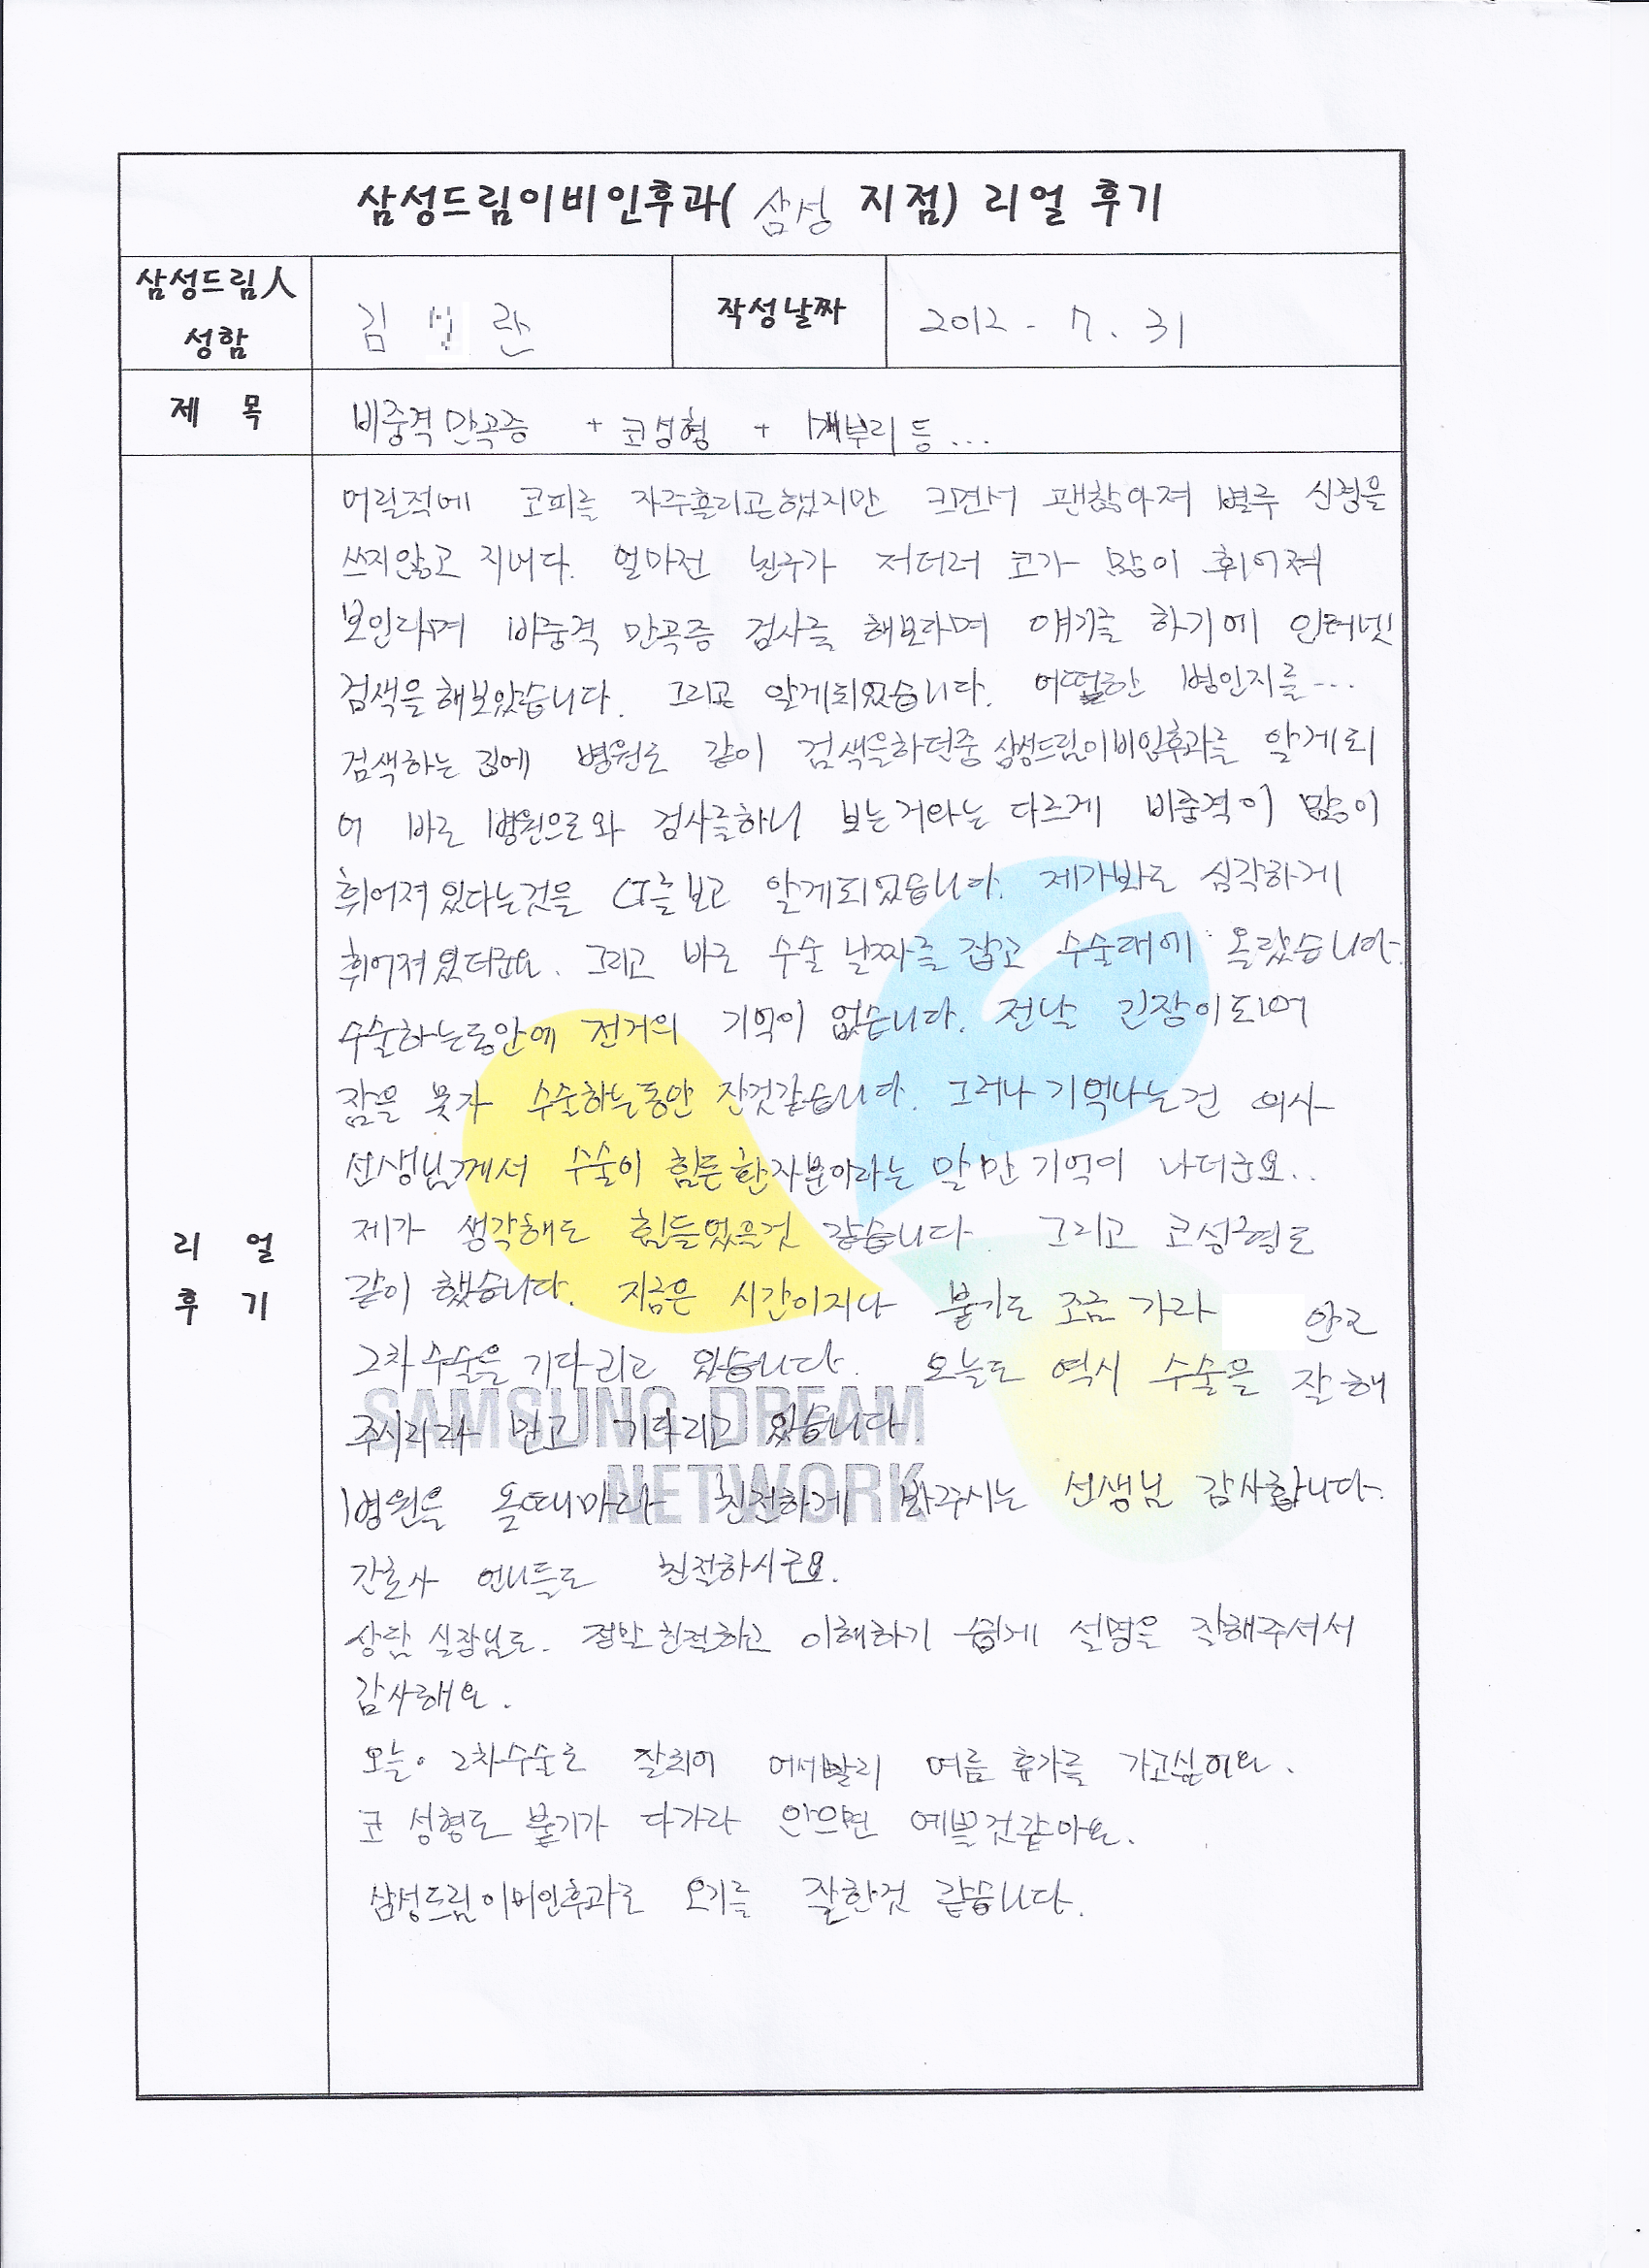 삼성드림이비인후과( 삼성 지점) 리얼 후기
삼성드림人
성함
김 란
작성날짜
2012 - 7. 31
제 목
비중격만곡증 + 코성형 + 매부리 등...
어릴적에 코피를 자주흘리곤했지만 크면서 괜찮아져 별루 신경을
쓰지않고 지내다. 얼마전 친구가 저더러 코가 많이 휘어져
보인다며 비중격 만곡증 검사를 해보라며 얘기를 하기에 인터넷
검색을 해보았습니다. 그리고 알게되었습니다. 어떠한 병인지를...
검색하는 김에 병원도 같이 검색을하던중 삼성드림이비인후과를 알게되
어 바로 병원으로와 검사를하니 보는거와는 다르게 비중격이 많이
휘어져 있다는것을 CT를보고 알게되었습니다. 제가봐도 심각하게
휘어져있더군요. 그리고 바로 수술 날짜를 잡고 수술대에 올랐습니다.
수술하는동안에 전거의 기억이 없습니다. 전날 긴장이되어
잠을 못자 수술하는동안 잔것같습니다. 그러나 기억나는건 의사
선생님께서 수술이 힘든환자분이라는 말만 기억이 나더군요..
제가 생각해도 힘들었을것 같습니다. 그리고 코성형도
같이 했습니다. 지금은 시간이지나 붓기도 조금 가라 안고
2차수술을 기다리고 있습니다. 오늘도 역시 수술을 잘해
주시리라 믿고 기다리고 있습니다.
SAMSUNG DREAM
NETWORK
병원을 올때마다 친절하게 봐주시는 선생님 감사합니다.
간호사 언니들도 친절하시구요.
상담 실장님도. 정말친절하고 이해하기 쉽게 설명을 잘해주셔서
감사해요.
오늘. 2차수술도 잘되어 어서빨리 여름 휴가를 가고싶어요.
코 성형도 붓기가 다가라 안으면 예쁠것같아요.
삼성드림이비인후과로 오기를 잘한것 같습니다.
리 얼
후 기